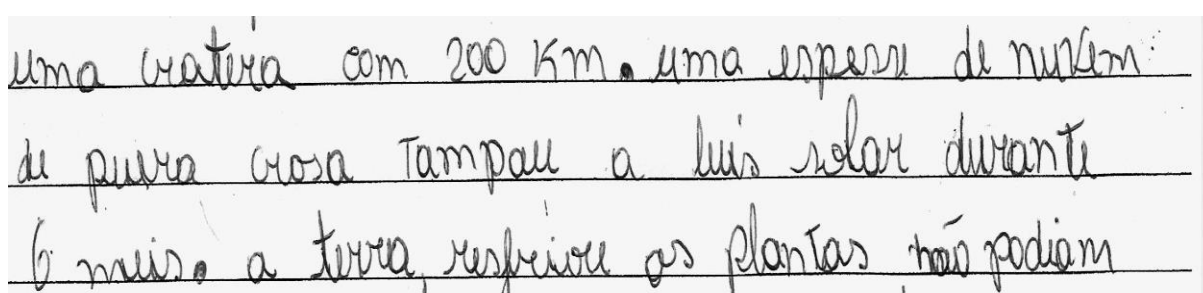 uma crateria com 200 Km. uma espesse de nuvem
de puera crosa Tampau a luis solar durante
6 meis. a terra, resfriore as plantas não podiam